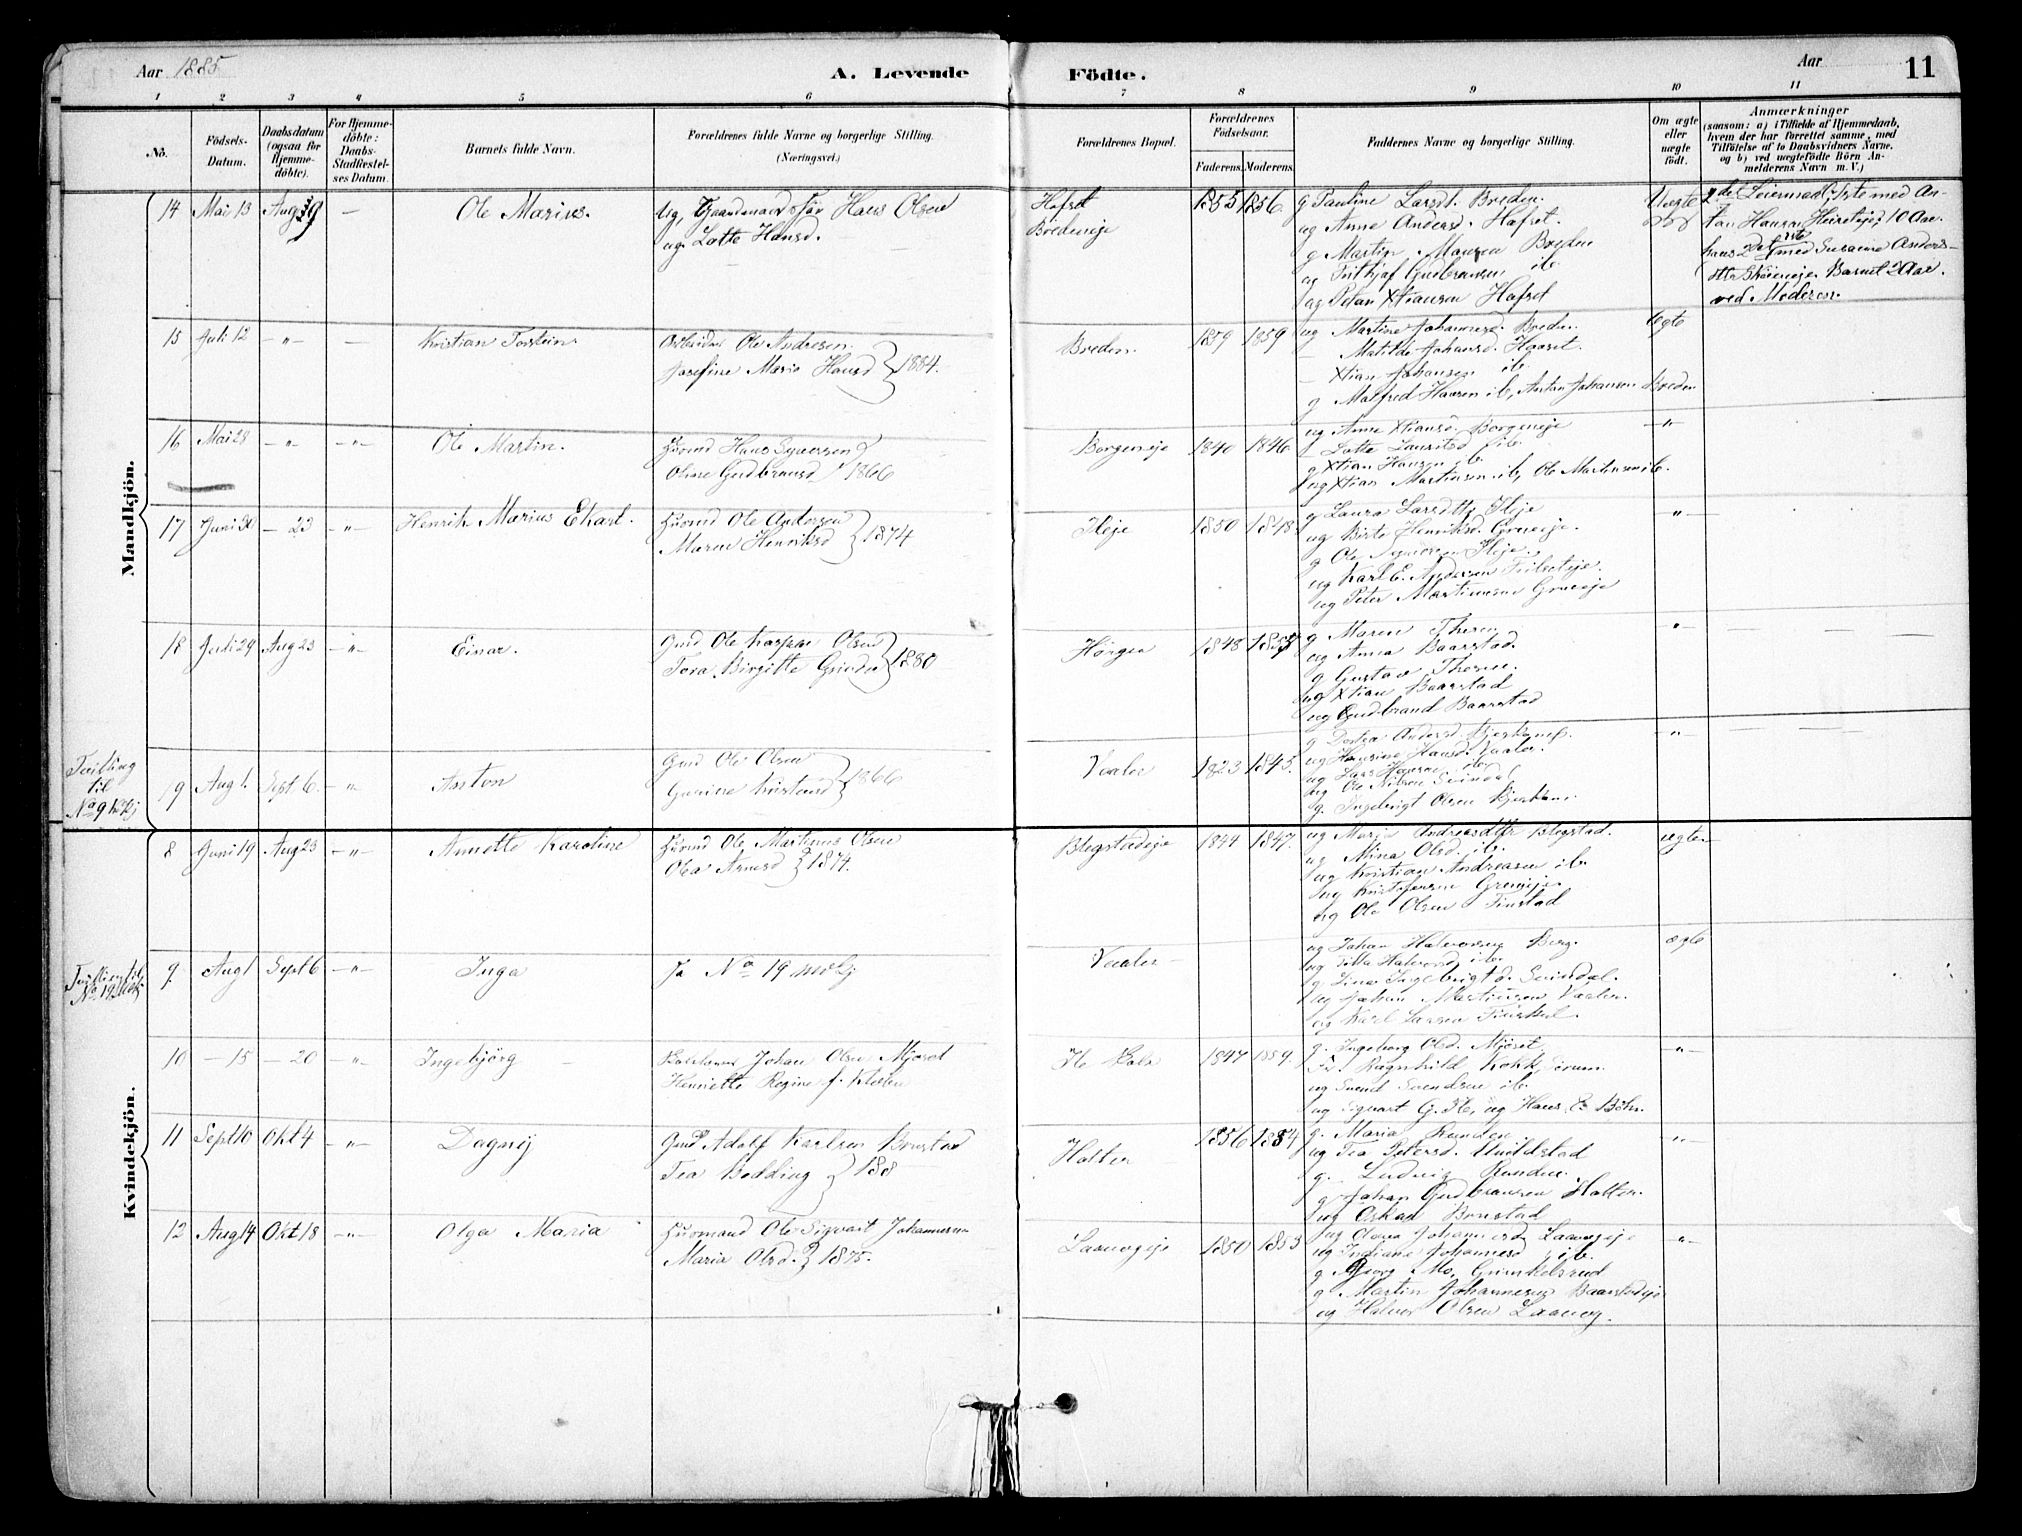 Aar 1885
A. Levende Födte.
Aar
11
1 2 3 4 5 6 7 8 9 10 11
No.
Födsels-Datum.
Daabsdatum (ogsaa for Hjemmedöbte).
For Hjemmedöbte: Daabs-Stadfæstelses Datum.
Barnets fulde Navn.
Forældrenes fulde Navne og borgerlige Stilling. (Næringsvei.)
Forældrenes Bopæl.
Forældrenes Födselsaar.
Faderens. Moderens.
Faddernes Navne og borgerlige Stilling.
Om ægte eller uægte födt.
Anmærkninger
(saasom: a) i Tilfælde af Hjemmedaab,
hvem der har forrettet samme, med
Tilföielse af to Daabsvidners Navne,
og b) ved uægtefödte Börn An-
melderens Navn m. V.)
Mandkjön.
14 Mai 13 Aug — Ole Marius. ug. Gaardmands Søn Hans Olsen
ug. Lotte Hansd.
Hofset
Bredeneje
1855 1856
g Pauline Larsd. Breden.
ug Anne Andersd. Hofset.
g Martin Breden
ug Frithjof Gudbransen ib.
ug Petan Xtiansen Hofset
Uægte
2det Leiermaal, 1ste med An-
ton Hansen 10 Aar.
hans 2det med Susanne Anders-
dtr Barnet 2 Aar.
ved Moderen.
15 Juli 12 —"— — Kristian Torstein Arbeider Ole Andresen
Josefine Marie Hansd } 1884.
Breden. 1859 1859
ug Martine Johannesd. Breden.
— Matilde Johansd. Haaset.
— Xtian Johansen ib.
g Matfred Hansen ib, Anton Johansen Breden
Ægte
16 Mai 28 —"— —"— Ole Martin. Hsmd Hans Syversen
Oline Gudbransd } 1866
Borgeneje 1840 1846.
ug Anne Xtiansd. Borgeneje
Lotte Lauritsd ib.
g Xtian Hansen ib.
ug Xtian Martinsen ib, Ole Martinsen ib.
—"—
17 Juni 30 — 23 —"— Henrik Marius Ekart. Hsmd Ole Andersen
Maren Henriksd } 1874
Ileje 1850 1848
g Laura Larsdtr Ileje
ug Birte Henriksd. Graveeje.
g Ole Ileje.
ug Karl E. Andersen
ug Peter Martinsen
—"—
18 Juli 29 Aug 23 —"— Einar. Gmd Ole Kaspar Olsen
Tora Birgitte } 1880
Hørgen 1848 1857
g Maren Thesen
ug Anna Baarstad.
g Gustav Thesen.
ug Xtian Baarstad
ug Gudbrand Baarstad
"
Tvilling til No 9 Kvkj
19 Aug 1. Sept. 6. —"— Anton Gmd Ole Olsen
} 1866
Vaaler 1823 1845.
g Dortea Andersd.
ug Hansine Hansd. Vaaler.
ug Lars Hansen ib.
ug Ole Nilsen Svindal
g. Ingebrigt Olsen
—"—
Kvindekjön.
8 Juni 19 Aug 23 —"— Annette Karoline Hsmd Ole Martinus Olsen
Olea } 1874.
Blegstadeje 1844 1847.
ug Marja Andreasdtr Blegstad.
ug Mina Olsd. ib.
ug Kristian Andreasen ib.
ug Kristofersen
ug Ole Olsen Finstad
ægte
Tvilling til No. 19 Mdkj
9. Aug 1 Sept 6 —"— Inga Se No 19 mdkj
Vaaler
ug Johan Halvorsen Berg.
ug Halvorsd ib.
g. Lina Ingebrigtsd. Svindal.
ug Johan Martinsen Vaaler.
ug Karl Larsen
ægte
10 — 15 — 20 —"— Ingebjörg Johan Olsen Mjøset
Henriette Regine f.
1847 1859.
g. Ingeborg Olsd. Mjøset,
Fr. Ragnhild Kokk, Sørum
ug Svend Svendsen ib.
ug Sigvart G. ug Hans E. Bøhn.
—"—
11 Sept 10 Okt 4 —"— Dagny Gmd Adolf Karlsen Bonstad
Tea Bedding } 188
Holter 1856 1854
g. Maria Runden
ug Tea Petersd.
g. Ludvig Runden.
g Johan Gudbransen Holter.
ug Oskar Bonstad
—"—
12 Aug 14 Okt 18 —"— Olga Maria Husmand Ole Sigvart Johannesen
Maria Olsd. } 1875.
Laavegeje 1850 1853
ug Olava Johannesd Laavegeje
ug Indiane Johannesd ib.
g Georg Mo, Grinkelsrud
g. Martin Johannesen Baarstadeje
ug Halvor Olsen Laaveg.
—"—